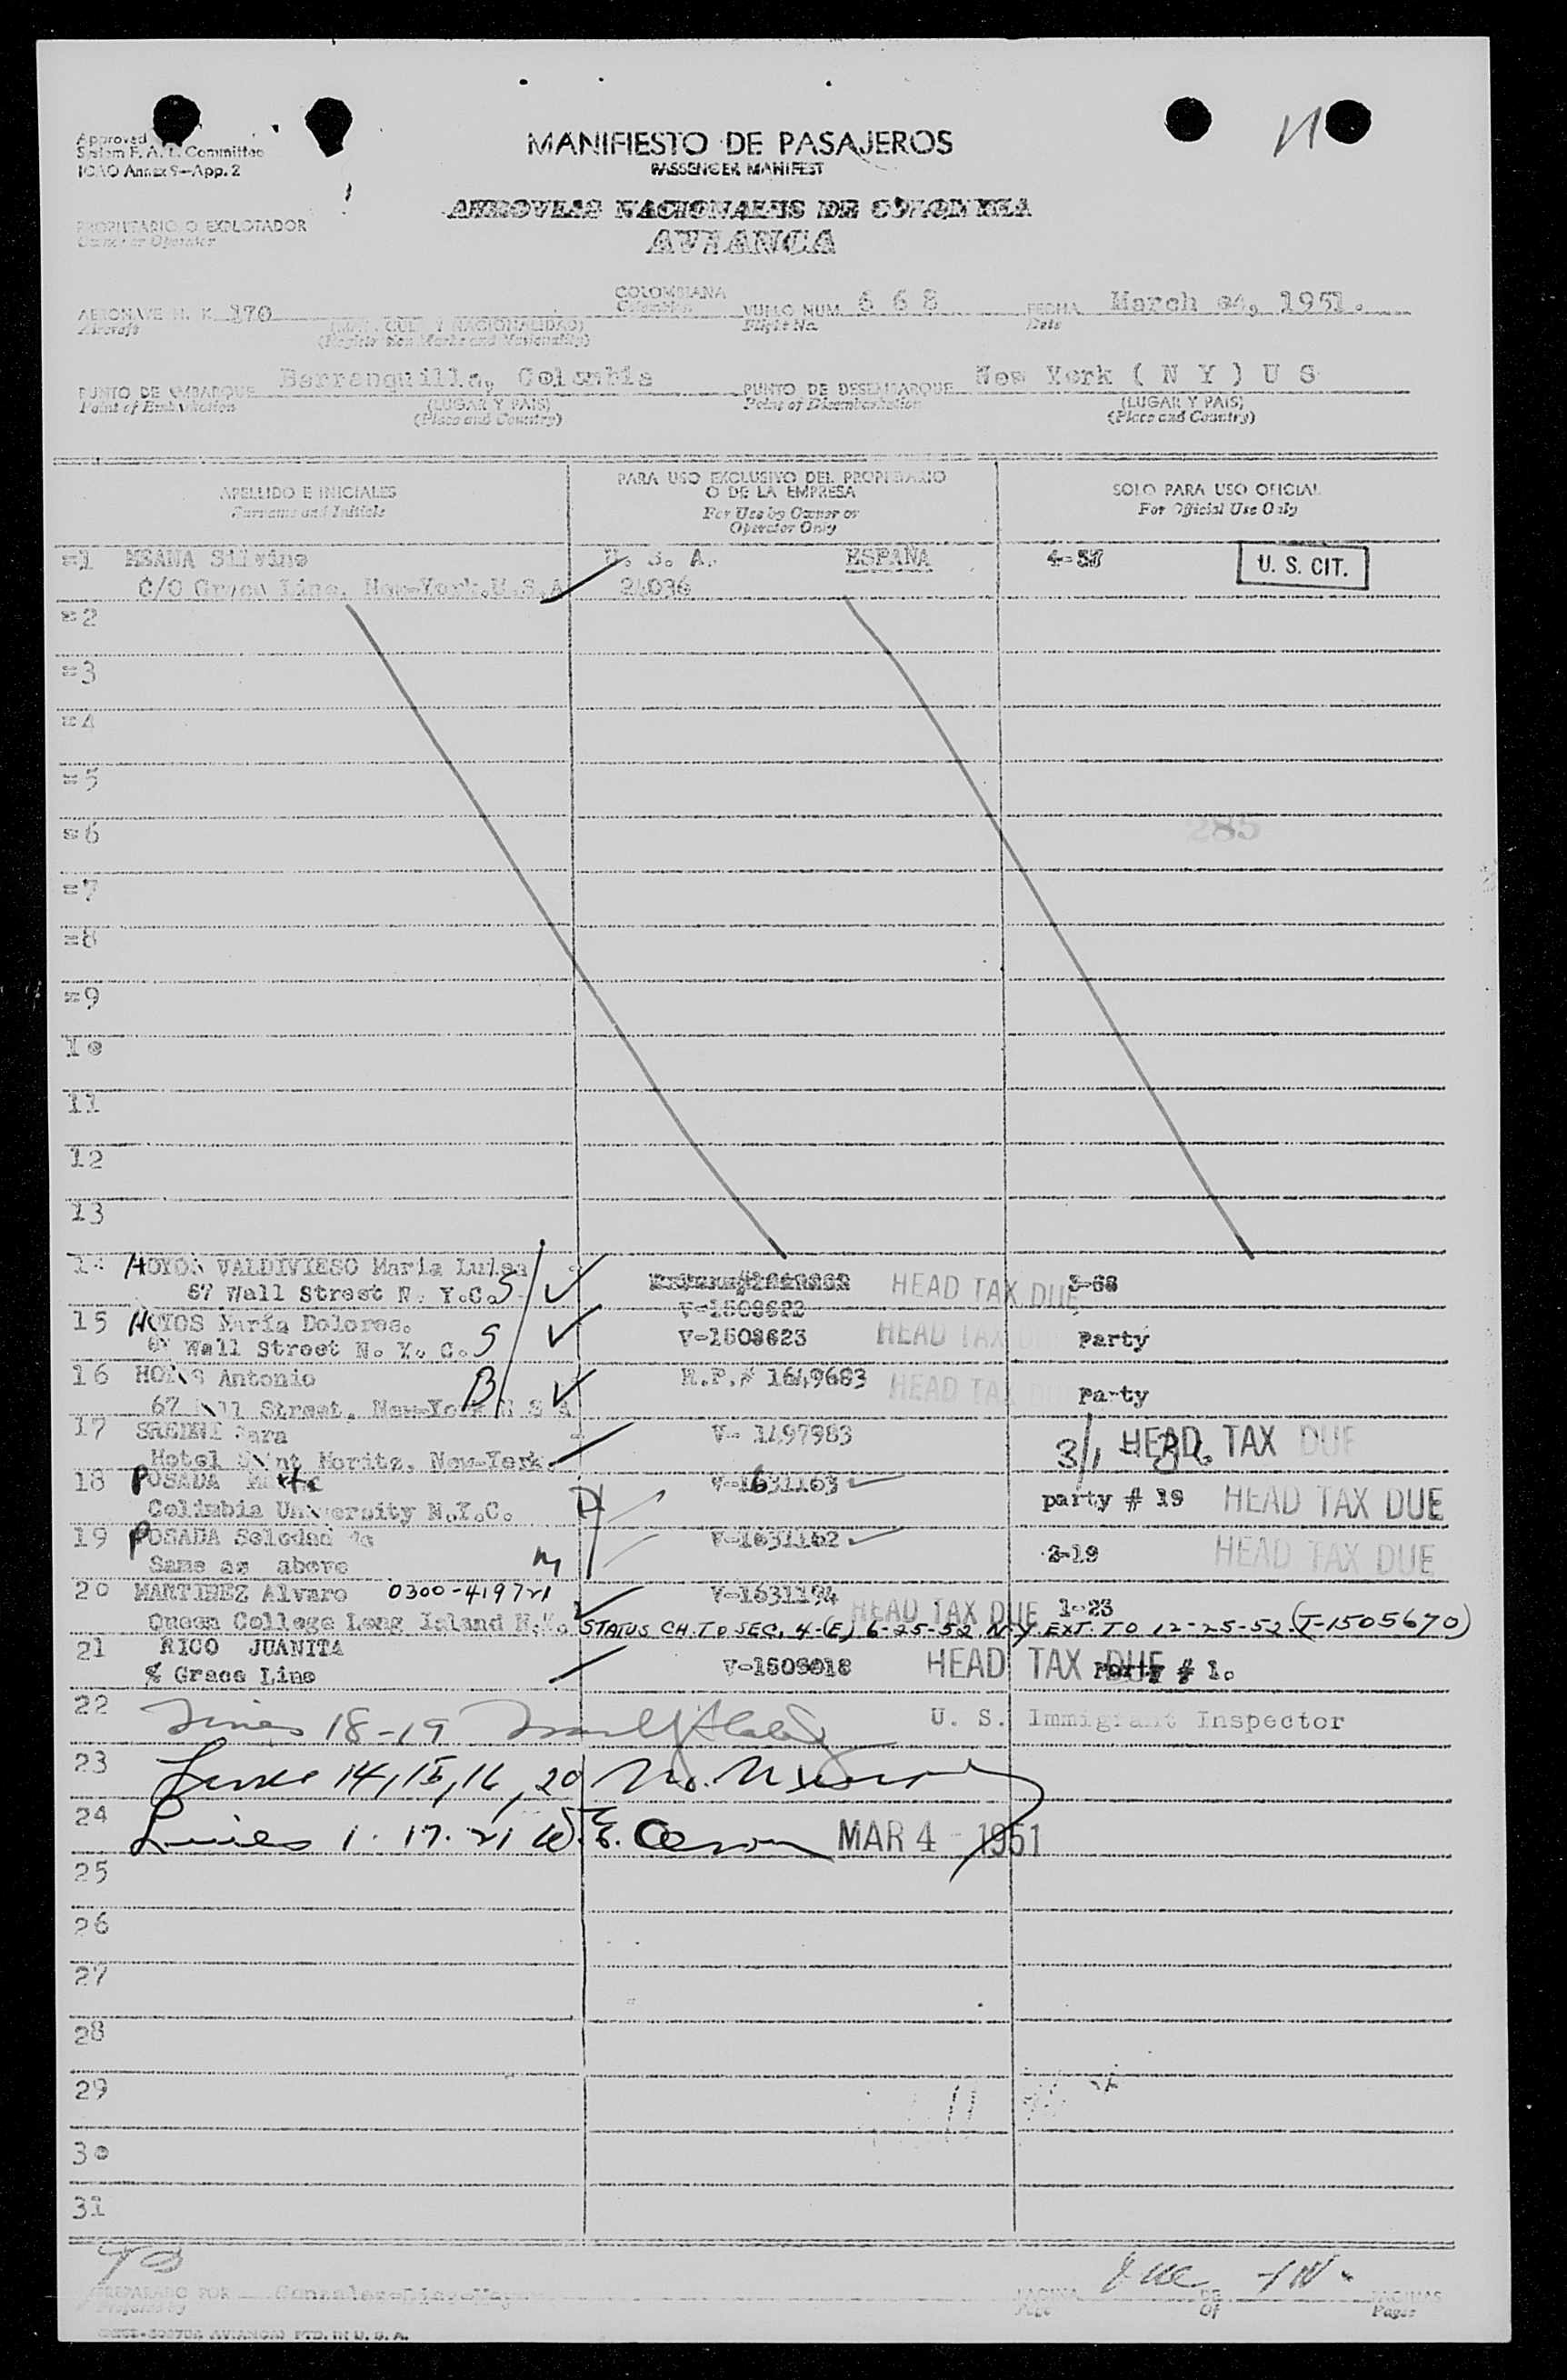 Approved
System F. A. L. Committee
ICAO Annex 9-App. 2
MANIFIESTO DE PASAJEROS
PASSENGER MANIFEST
AEROVIAS NACIONALES DE COLOMBIA
AVIANCA
PROPIETARIO O EXPLOTADOR
Owner or Operator
AERONAVE H. K. 170
Aircraft
(MATRICULA Y NACIONALIDAD)
(Registration Marks and Nationality)
COLOMBIANA
Colombian
VUELO NUM. 5 6 8
Flight No.
FECHA March 04, 1951.
Date
PUNTO DE EMBARQUE Barranquilla, Colombia
Point of Embarkation
(LUGAR Y PAIS)
(Place and Country)
PUNTO DE DESEMBARQUE New York ( N Y ) U S
Point of Disembarkation
(LUGAR Y PAIS)
(Place and Country)
APELLIDO E INICIALES
Surname and Initials
PARA USO EXCLUSIVO DEL PROPIETARIO
O DE LA EMPRESA
For Use by Owner or
Operator Only
SOLO PARA USO OFICIAL
For Official Use Only
=1 MEANA Silvino U. S. A. ESPAÑA 4-57 U. S. CIT.
C/O Grace Line, New-York.U.S.A 24036
=2
=3
=4
=5
=6 285
=7
=8
=9
10
11
12
13
14 HOYOS VALDIVIESO Maria Luisa
67 Wall Street N. Y.C. S HEAD TAX DUE 3-68
15 HOYOS María Dolores.
67 Wall Street N. Y. C. S V-1508623 HEAD TAX DUE Party
16 HOYOS Antonio B R.P.# 1649683 HEAD TAX DUE Party
67 Wall Street, New-York U S A
17 Sara V- 1497983 HEAD TAX DUE
Hotel Saint Moritz, New-York.
18 POSADA V-1631163 party # 19 HEAD TAX DUE
Colimbia University N.Y.C.
19 POSADA Soledad de V-1631162 2-19 HEAD TAX DUE
Same as above m
20 MARTINEZ Alvaro 0300-419721 V-1631194 HEAD TAX DUE 1-23
Queen College Long Island N.Y. STATUS CH. TO SEC. 4-(E) 6-25-52 N-Y EXT. TO 12-25-52 (T-1505670)
21 RICO JUANITA
% Grace Line V-1509018 HEAD TAX DUE Party # 1.
22 Lines 18-19 U. S. Immigrant Inspector
23 Lines 14, 15, 16, 20
24 Lines 1. 17. 21 MAR 4 - 1951
25
26
27
28
29
30
31
PREPARADO POR
Prepared by
PAGINA DE PAGINAS
Page Of Pages